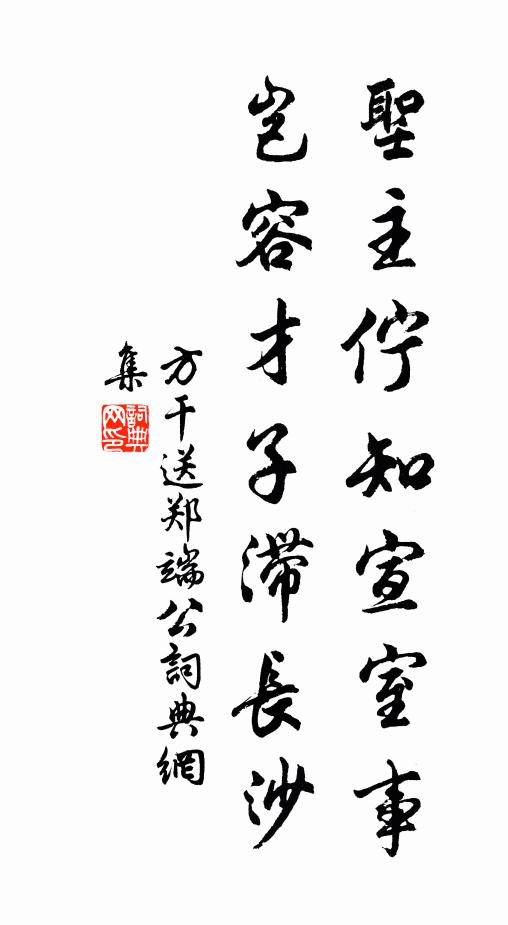 聖主佇知宣室事
豈容才子滯長沙
方干送郑端公詞典網
集
詞典
网印